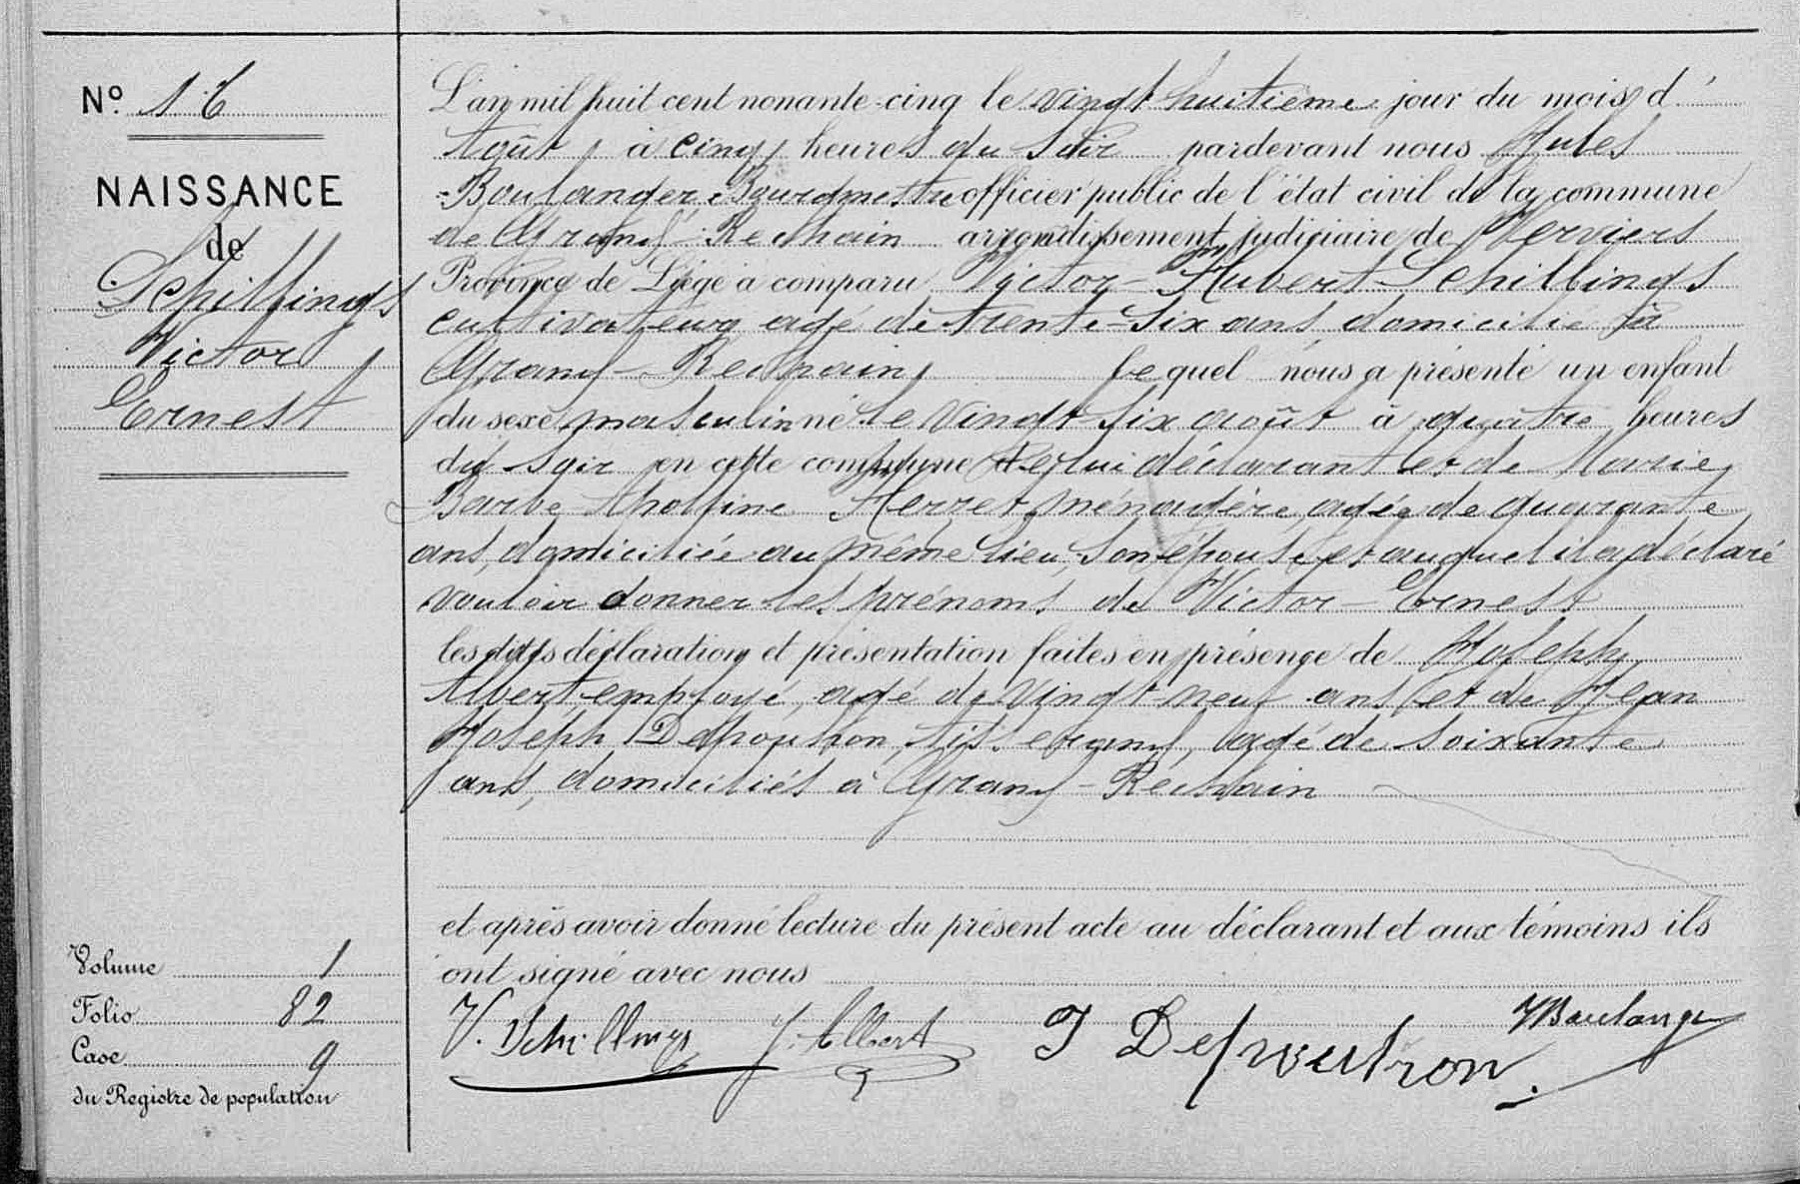 N° 16
NAISSANCE
de
Schillings
Victor
Ernest
L'an mil huit cent nonante-cinq le vingt huitième jour du mois d'
Août, à cinq heures du soir pardevant nous Jules
Boulanger, Bourgmestre officier public de l'état civil de la commune
de Grand-Rechain arrondissement judiciaire de Verviers
Province de Liége a comparu Victor-Hubert Schillings
cultivateur, agé de trente-six ans, domicilié à
Grand-Rechain, lequel nous a présenté un enfant
du sexe masculin né le vingt-six août à quatre heures
du soir en cette commune de lui déclarant et de Marie
Barbe Apolline Herzet, ménagère, agée de quarante
ans, domiciliée au même lieu, son épouse, et auquel il a déclaré
vouloir donner les prénoms de Victor-Ernest
les dites déclaration et présentation faites en présence de Joseph
Albert employé, agé de vingt-neuf ans et de Jean
Joseph Depouhon, tisserand, agé de soixante
ans, domiciliés à Grand-Rechain
et après avoir donné lecture du présent acte au déclarant et aux témoins ils
ont signé avec nous
V. Schillings J. Albert J Boulanger
Volume 1
Folio 82
Case 9
du Registre de population